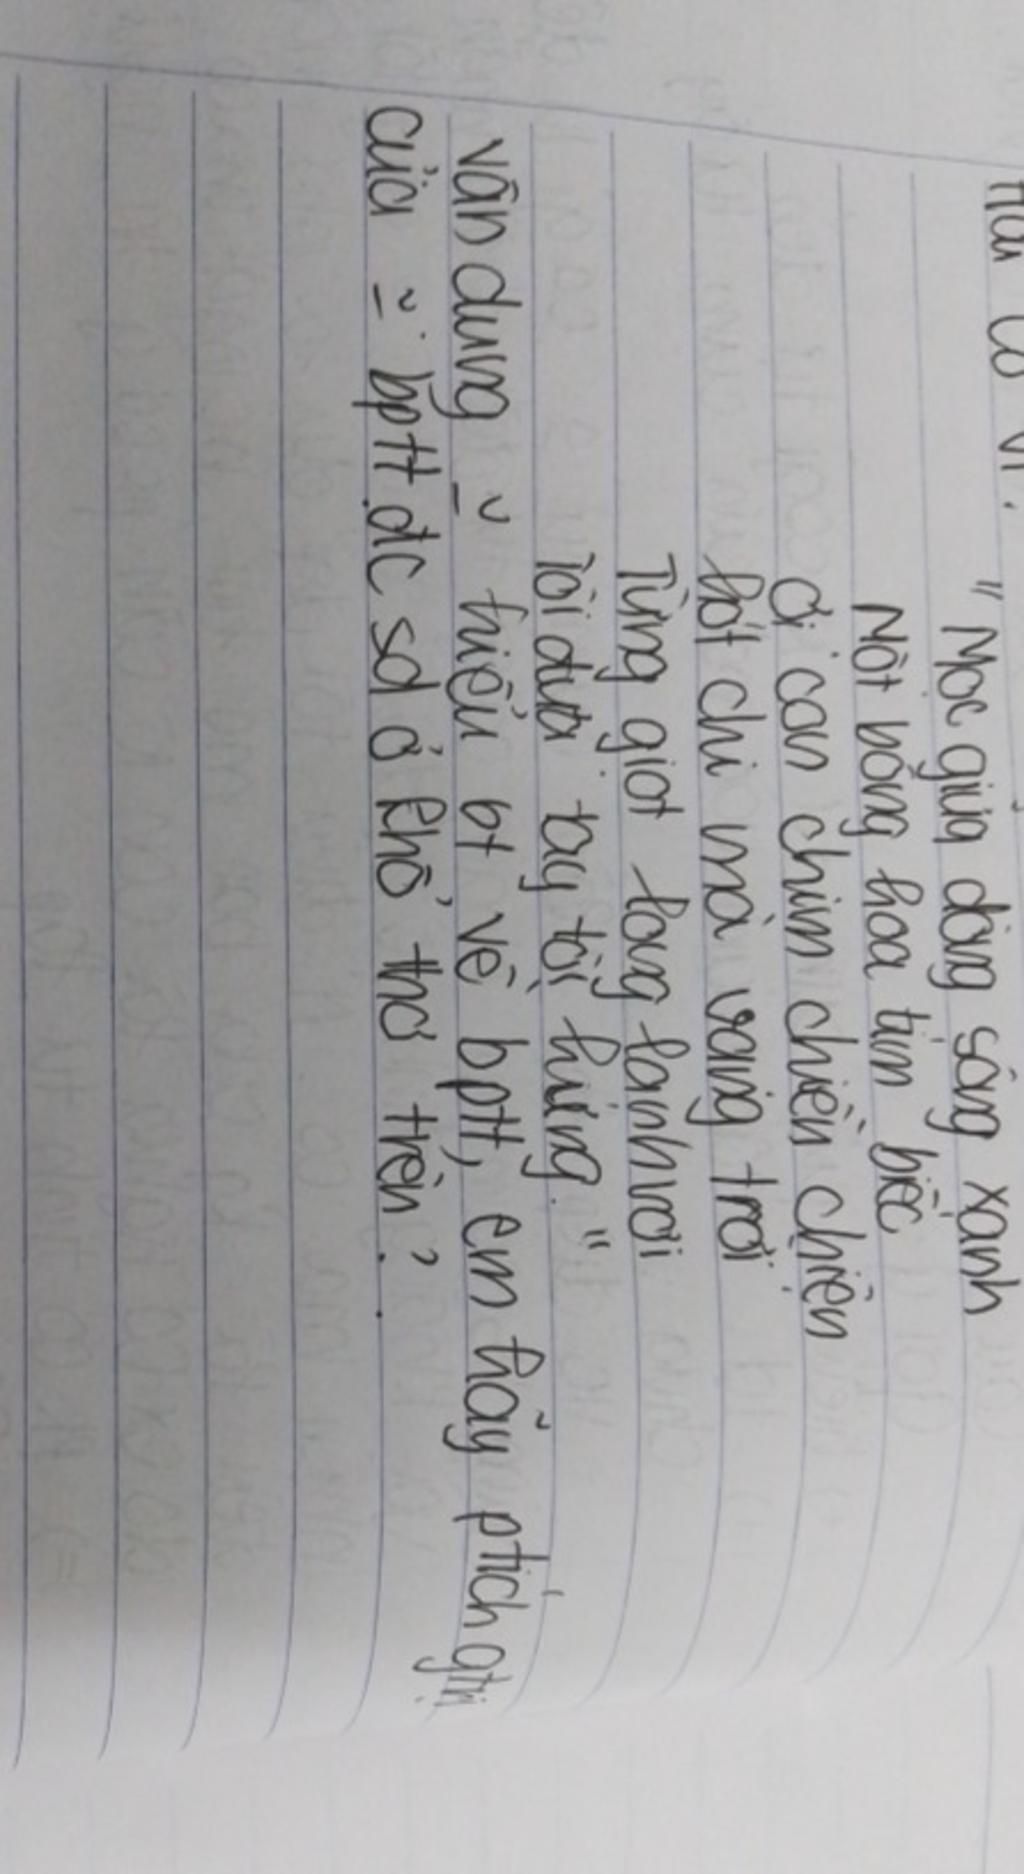 Hải có vi.
"Mọc giữa dòng sông xanh
Một bông hoa tím biếc
Ơi con chim chiền chiện
hót chi mà vang trời
Từng giọt long lanh rơi
Tôi đưa tay tôi hứng."
vận dụng ~ hiểu bt về bptt, em hãy ptích gtrị
của ~ bptt đc sd ở khổ thơ trên?.